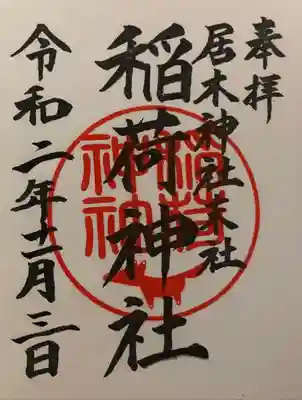 奉拝
居木神社末社
稲荷神社
令和二年十一月三日
稲荷神神